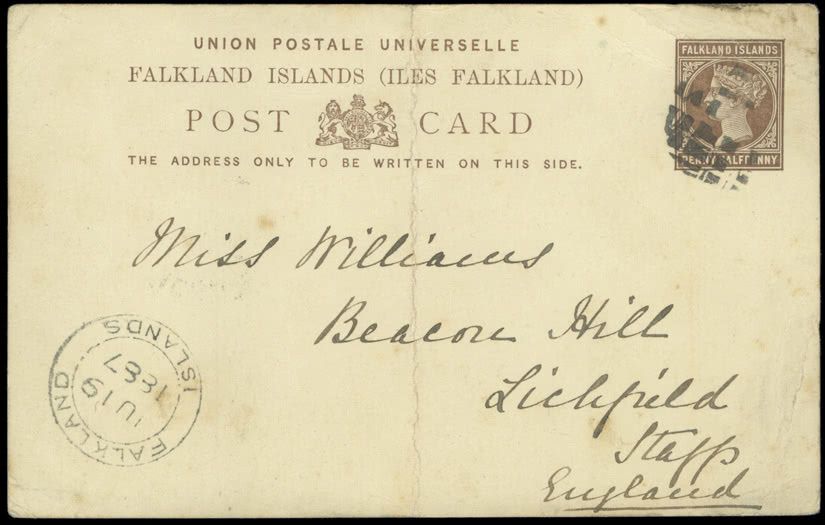 UNION POSTALE UNIVERSELLE
FALKLAND ISLANDS (ILES FALKLAND)
POST CARD
THE ADDRESS ONLY TO BE WRITTEN ON THIS SIDE.
FALKLAND ISLANDS
PENNY HALFPENNY
Miss Williams
Beacon Hill
Lichfield
Staffs
England
FALKLAND ISLANDS
19
1887